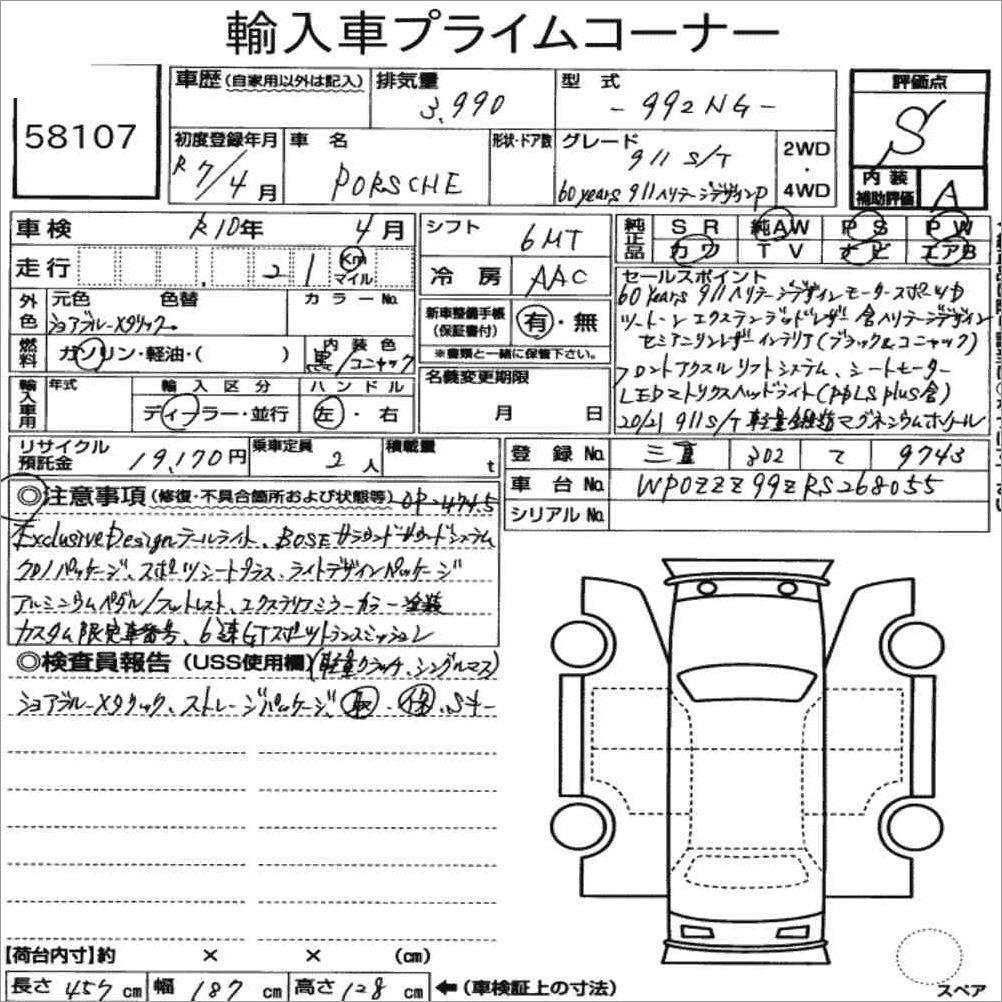 輸入車プライムコーナー
58107
車歴(自家用以外は記入)
排気量
3,990
型式
-992NG-
評価点
S
内装
補助評価
A
初度登録年月
R7/4月
車名
PORSCHE
形状・ドア数
グレード
911 S/T
60years 911ヘリテージデザインP
2WD
・
4WD
車検
R10年 4月
シフト
6MT
純正品
SR 純AW PS PW
カワ TV ナビ エアB
走行
21
Km
マイル
冷房
AAC
セールスポイント
60years 911ヘリテージデザインモータースポーツP
ツートーンエクステンデッドレザー含ヘリテージデザイン
セミアニリンレザーインテリア(ブラック&コニャック)
フロントアクスルリフトシステム、シートモーター
LEDマトリクスヘッドライト(PDLS plus含)
20/21 911S/T 軽量鍛造マグネシウムホイール
外色
元色 色替
ショアブルーメタリック。
カラーNo.
新車整備手帳
(保証書付)
有・無
※書類と一緒に保管下さい。
燃料
ガソリン・軽油・( )
内装色
黒/コニャック
輸入車用
年式
輸入区分
ディーラー・並行
ハンドル
左・右
名義変更期限
月 日
リサイクル
預託金
19,170円
乗車定員
2人
積載量
t
登録No.
三重 302 て 9743
車台No.
WP0ZZZ99ZRS268055
シリアルNo.
◎注意事項(修復・不具合箇所および状態等)OP-474.5
Exclusive Designテールライト、BOSEサラウンドサウンドシステム
クロノパッケージ、スポーツシートプラス、ライトデザインパッケージ
アルミニウムペダル/フットレスト、エクステリアミラーカラー塗装
カスタム限定車番号、6速GTスポーツトランスミッション
◎検査員報告(USS使用欄)(軽量クラッチ、シングルマス)
ショアブルーメタリック、ストレージパッケージ、取・保・Sキー
【荷台内寸】約 × × (cm)
長さ 457 cm 幅 187 cm 高さ 128 cm ←(車検証上の寸法)
スペア